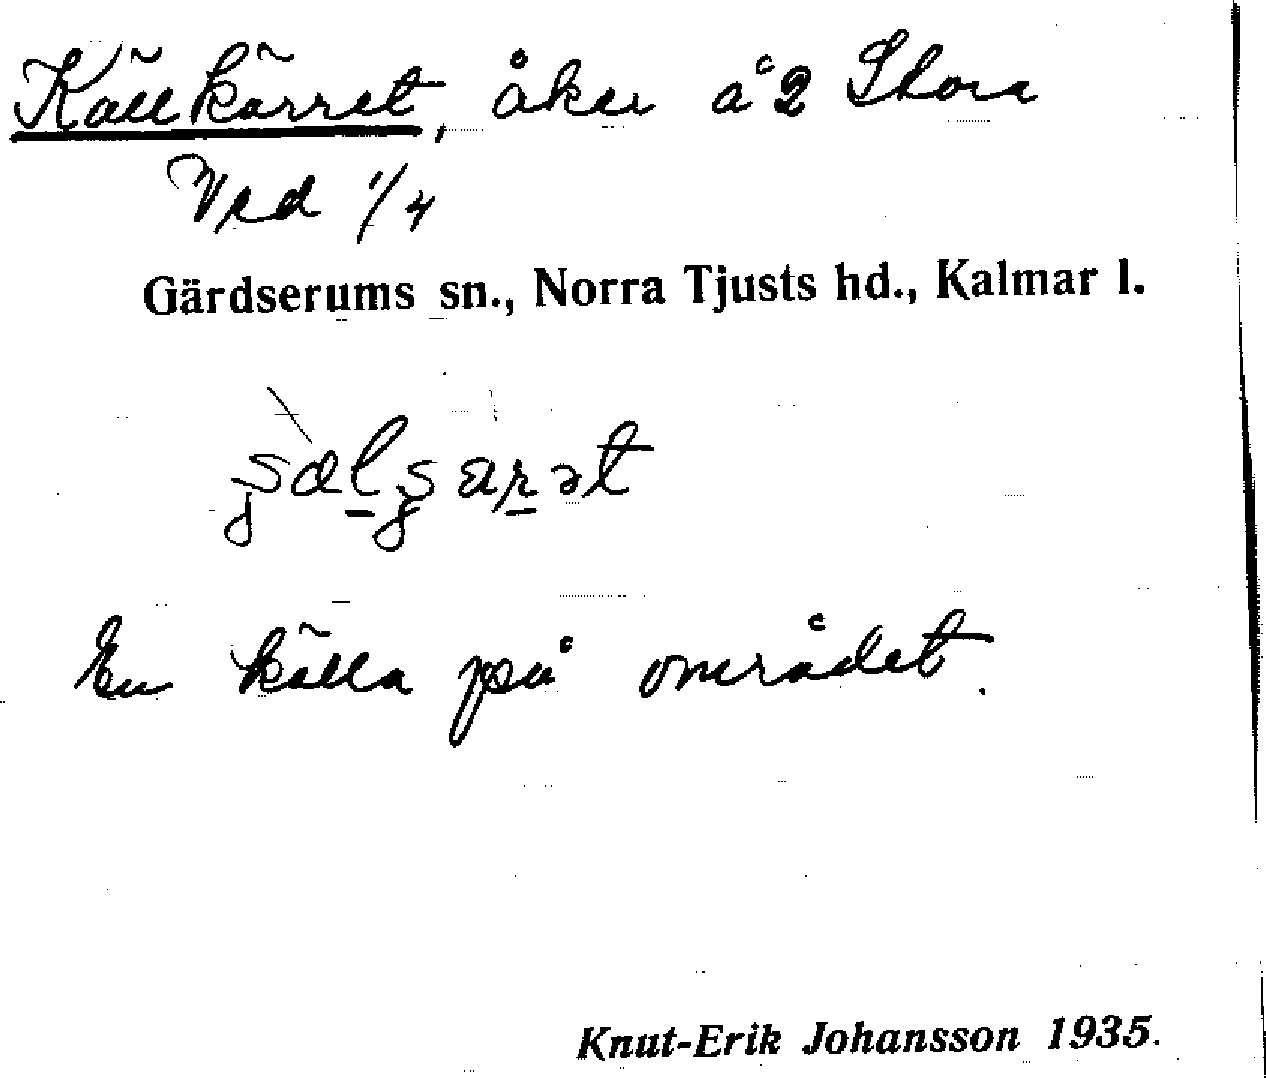 Källkärret, åker å 2 Stora
Vrd 1/4
Gärdserums sn., Norra Tjusts hd., Kalmar l.
En källa på området.
Knut-Erik Johansson 1935.